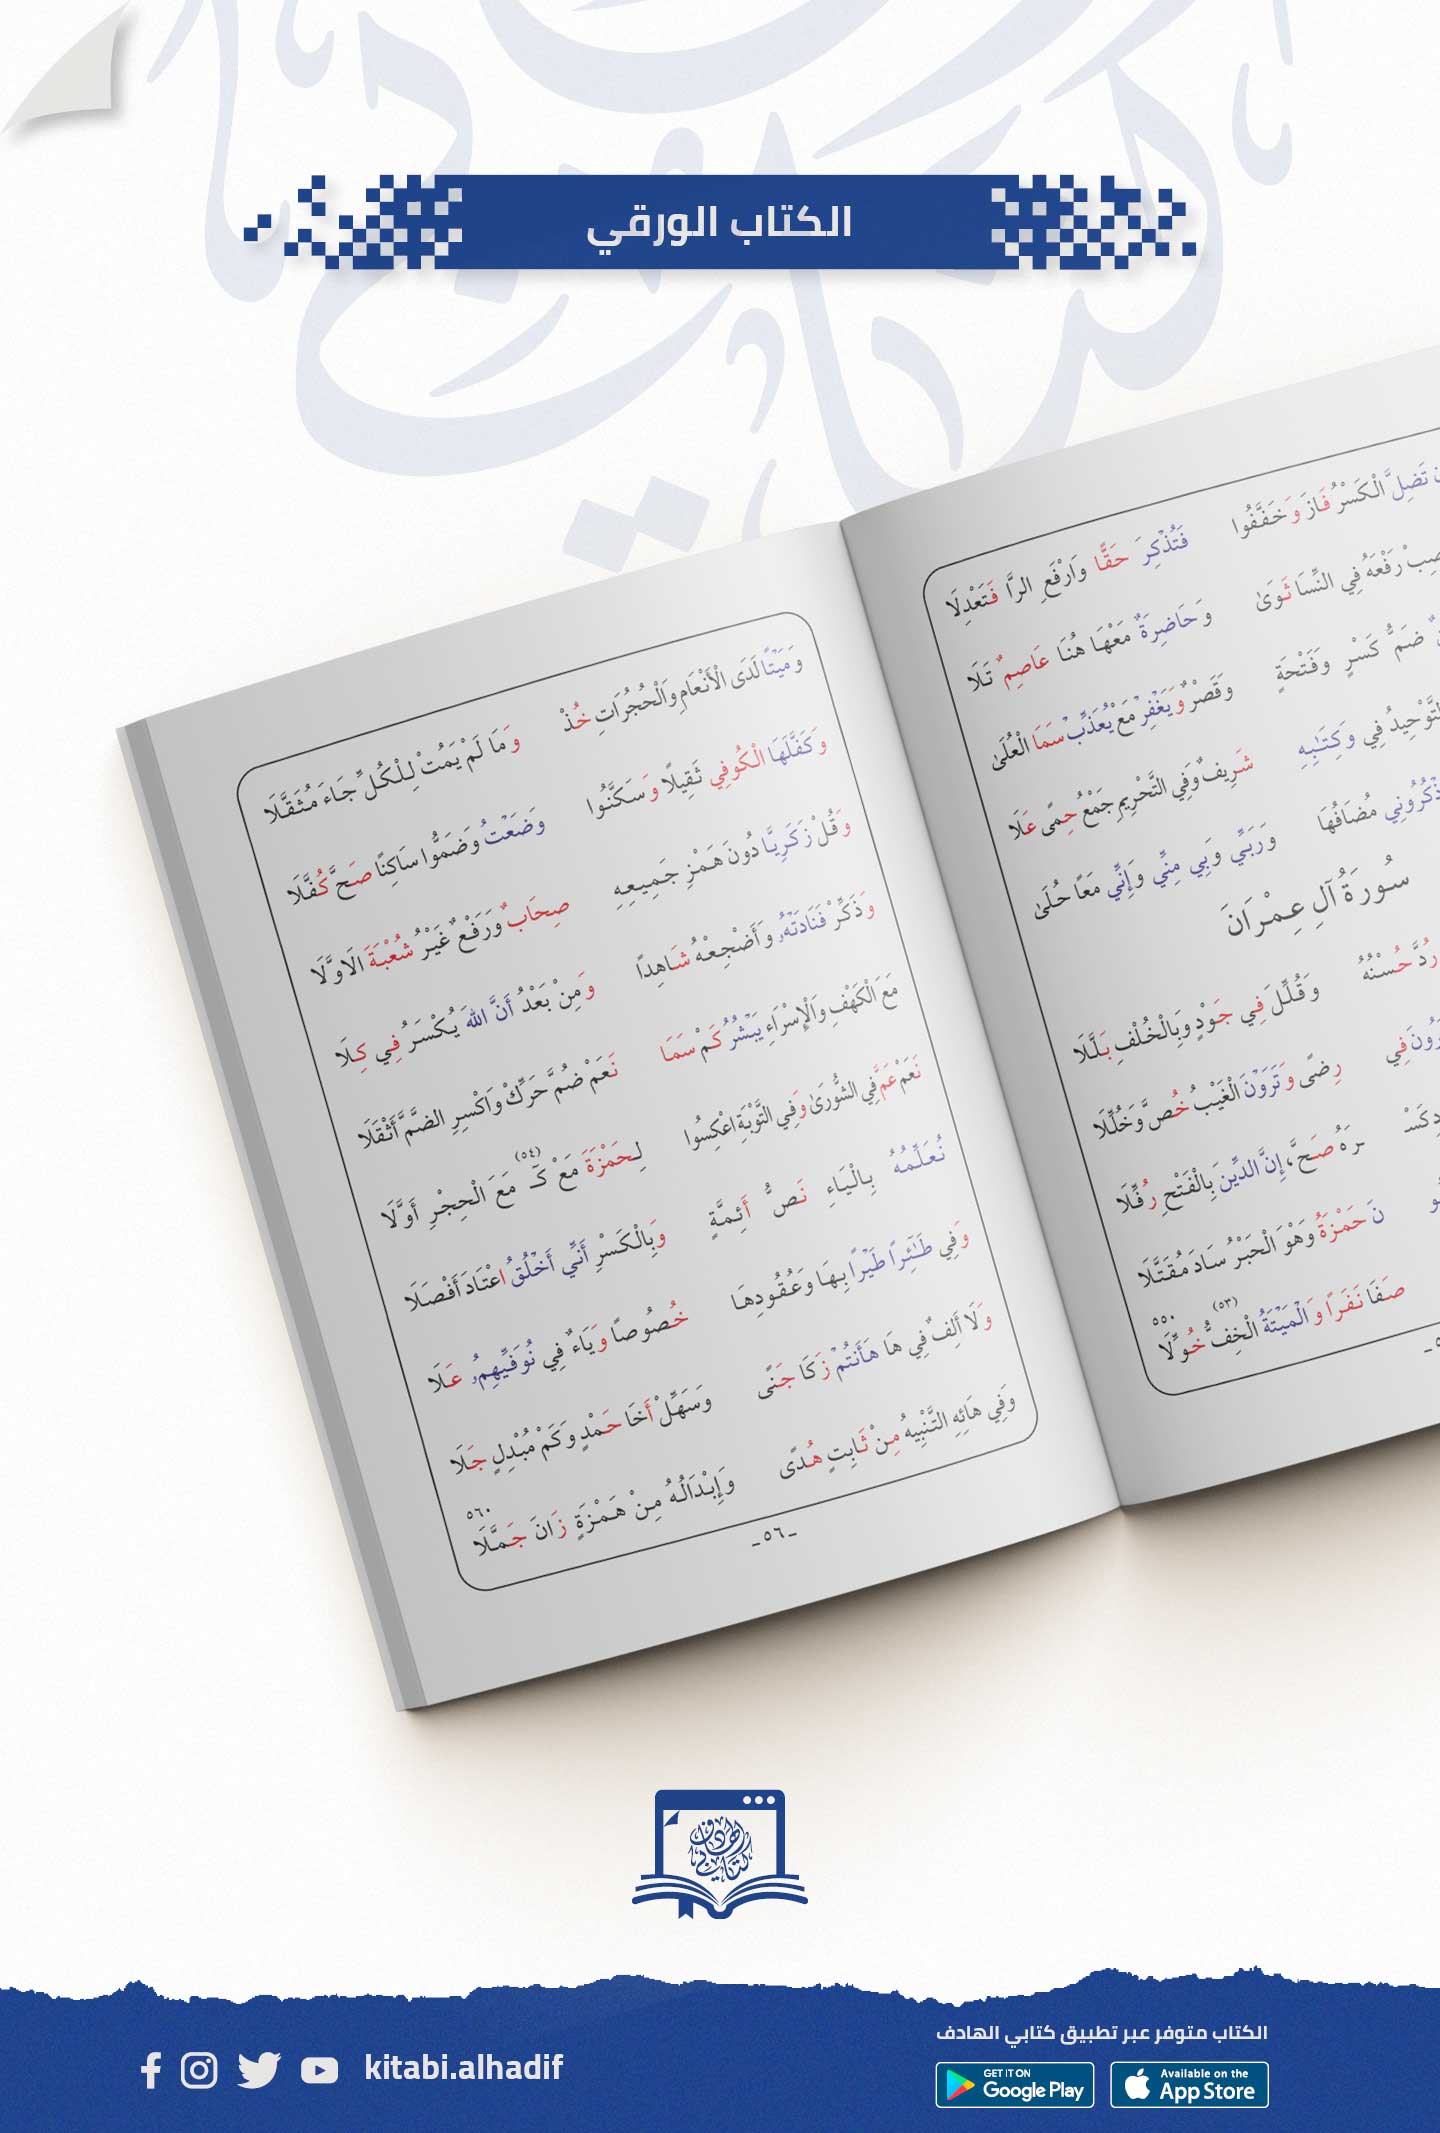 الكتاب الورقي
ن تَضِلَّ الْكَسْرُ فَازَ وَخَفَّفُوا فَتُذْكِرَ حَقًّا وَارْفَعِ الرَّا فَتَعْدِلَا
رَفْعَهُ فِي النِّسَا ثَوَىٰ وَحَاضِرَةٌ مَعْهَا هُنَا عَاصِمٌ تَلَا
ضَمُّ كَسْرٍ وَفَتْحَةٍ وَقَصْرٌ وَيَغْفِرْ مَعْ يُعَذِّبْ سَمَا الْعُلَىٰ
التَّوْحِيدُ فِي وَكِتَٰبِهِ شَرِيفٌ وَفِي التَّحْرِيمِ جَمْعُ حِمًى عَلَا
ذْكُرُونِي مُضَافُهَا وَرَبِّي وَبِي مِنِّي وَإِنِّي مَعًا حُلَىٰ
سُورَةُ آلِ عِمْرَانَ
رُدَّ حُسْنُهُ وَقُلِّلَ فِي جَوْدٍ وَبِالْخُلْفِ بَلَّلَا
رَوْنَ فِي رِضًى وَتَرَوْنَ الْغَيْبُ خُصَّ وَخُلِّلَا
كَسْـ ـرَهُ صَحَّ، إِنَّ الدِّينَ بِالْفَتْحِ رُفِّلَا
نَ حَمْزَةُ وَهْوَ الْحَبْرُ سَادَ مُقَتَّلَا
صَفَا نَفَرًا وَالْمَيْتَةُ الْخِفُّ خُوِّلَا (٥٣) ٥٥٠
وَمَيْتًا لَدَى الْأَنْعَامِ وَالْحُجُرَاتِ خُذْ وَمَا لَمْ يَمُتْ لِلْكُلِّ جَاءَ مُثَقَّلَا
وَكَفَّلَهَا الْكُوفِي ثَقِيلًا وَسَكَّنُوا وَضَعْتُ وَضَمُّوا سَاكِنًا صَحَّ كُفَّلَا
وَقُلْ زَكَرِيَّا دُونَ هَمْزِ جَمِيعِهِ صِحَابٌ وَرَفْعٌ غَيْرُ شُعْبَةَ الَاوَّلَا
وَذَكِّرْ فَنَادَتْهُ وَأَضْجِعْهُ شَاهِدًا وَمِنْ بَعْدُ أَنَّ اللهَ يُكْسَرُ فِي كِلَا
مَعَ الْكَهْفِ وَالْإِسْرَاءِ يَبْشُرُ كَمْ سَمَا نَعَمْ ضُمَّ حَرِّكْ وَاكْسِرِ الضَّمَّ أَثْقَلَا
نَعَمْ عَمَّ فِي الشُّورَىٰ وَفِي التَّوْبَةِ اعْكِسُوا لِحَمْزَةَ مَعْ كَـَ (٥٤) مَعَ الْحِجْرِ أَوَّلَا
نُعَلِّمُهُ بِالْيَاءِ نَصُّ أَئِمَّةٍ وَبِالْكَسْرِ أَنِّي أَخْلُقُ اعْتَادَ أَفْصَلَا
وَفِي طَٰئِرًا طَيْرًا بِهَا وَعُقُودِهَا خُصُوصًا وَيَاءٌ فِي نُوَفِّيهِمُ عَلَا
وَلَا أَلِفٌ فِي هَا هَأَنتُمْ زَكَا جَنًى وَسَهِّلْ أَخَا حَمْدٍ وَكَمْ مُبْدِلٍ جَلَا
وَفِي هَائِهِ التَّنْبِيهُ مِنْ ثَابِتٍ هُدًى وَإِبْدَالُهُ مِنْ هَمْزَةٍ زَانَ جَمَّلَا ٥٦٠
ـ ٥٦ ـ
كتابي الهادف
الكتاب متوفر عبر تطبيق كتابي الهادف
kitabi.alhadif
GET IT ON
Google Play
Available on the
App Store